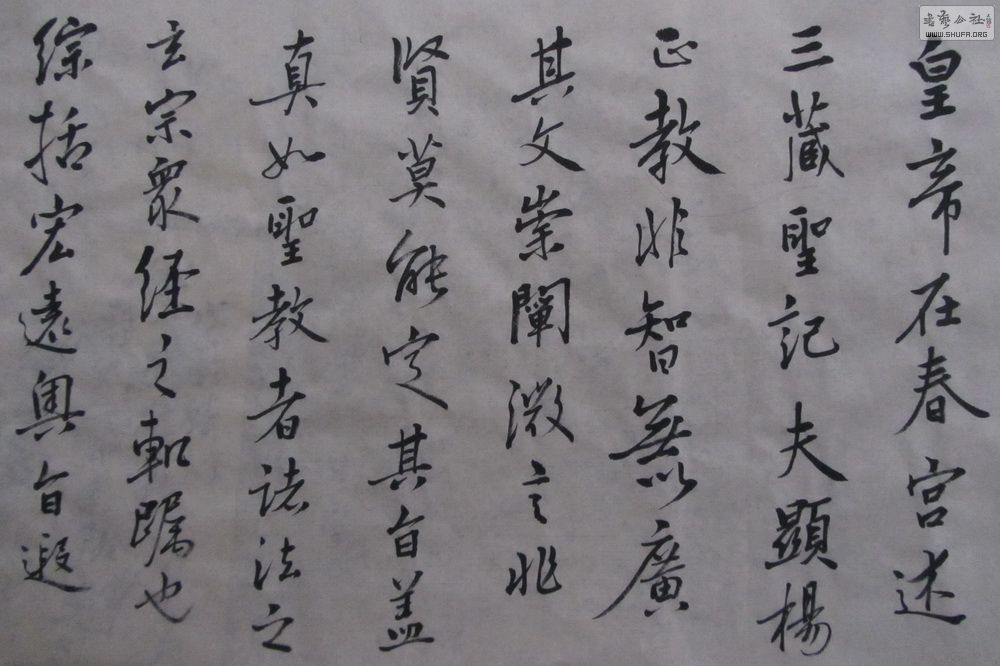 皇帝在春宫述
三藏聖記夫顯楊
正教非智無以廣
其文崇闡微言非
賢莫能定其旨盖
真如聖教者诸法之
玄宗衆经之軌躅也
综括宏遠奥旨遐
书艺公社
WWW.SHUFA.ORG